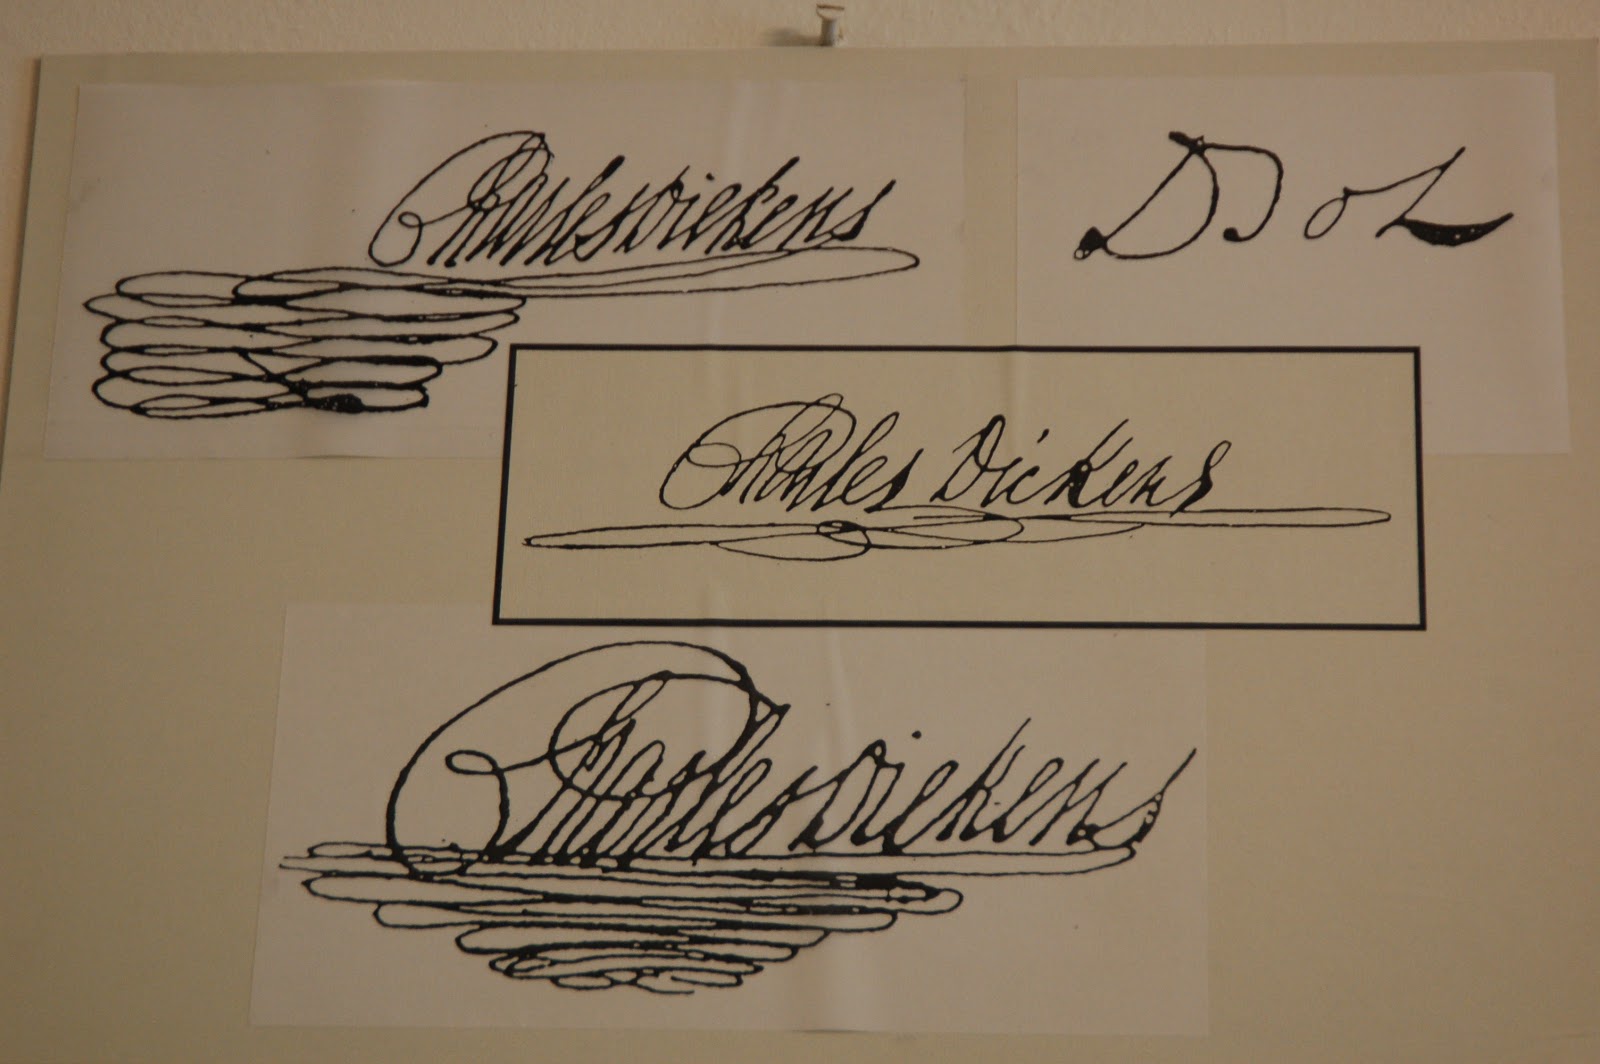 Charles Dickens
Charles Dickens
Charles Dickens